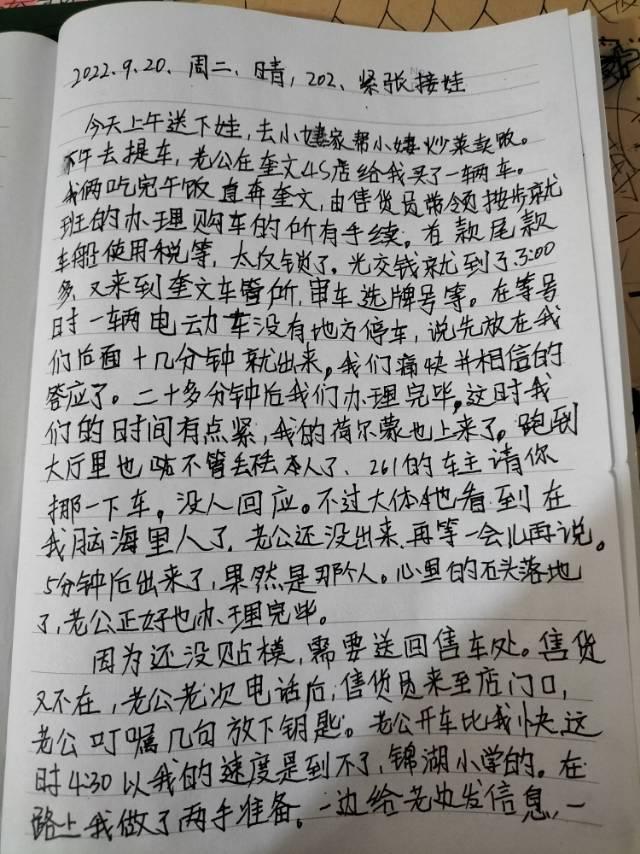 2022.9.20、周二、晴,202、紧张接娃
今天上午送下娃,去小婕家帮小婕炒菜卖饭。
下午去提车,老公在奎文4S店给我买了一辆车。
我俩吃完午饭直奔奎文,由售货员带领按步就
班的办理购车的所有手续。首款尾款
车船使用税等,太仅锁了。光交钱就到了3:00
多,又来到奎文车管所,审车选牌号等。在等号
时一辆电动车没有地方停车,说先放在我
们后面十几分钟就出来,我们痛快并相信的
答应了。二十多分钟后我们办理完毕,这时我
们的时间有点紧,我的荷尔蒙也上来了。跑到
大厅里也顾不管丢本人了、261的车主请你
挪一下车。没人回应。不过大体他看到在
我脑海里人了,老公还没出来,再等一会儿再说。
5分钟后出来了,果然是那个人。心里的石头落地
了,老公正好也办理完毕。
因为还没贴模,需要送回售车处。售货
又不在,老公老次电话后,售货员来至店门口,
老公叮嘱几句放下钥匙。老公开车比我快,这
时4:30以我的速度是到不了,锦湖小学的。在
路上我做了两手准备。一边给老发信息,一